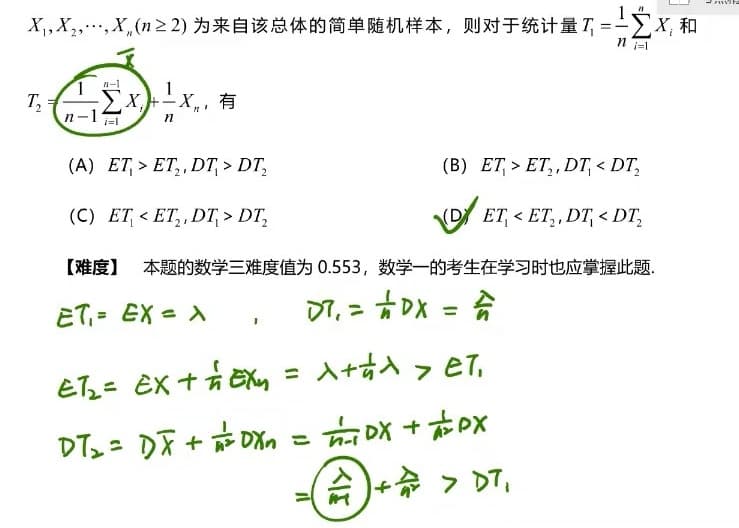 X₁, X₂, ⋯, Xₙ (n ≥ 2) 为来自该总体的简单随机样本，则对于统计量 T₁ = \frac{1}{n}\sum_{i=1}^{n} X_i 和
X̄
T₂ = \frac{1}{n-1}\sum_{i=1}^{n-1} X_i + \frac{1}{n} Xₙ，有
(A) ET₁ > ET₂, DT₁ > DT₂ (B) ET₁ > ET₂, DT₁ < DT₂
(C) ET₁ < ET₂, DT₁ > DT₂ (D) ET₁ < ET₂, DT₁ < DT₂
【难度】 本题的数学三难度值为 0.553，数学一的考生在学习时也应掌握此题.
ET₁ = EX = λ , DT₁ = \frac{1}{n} DX = \frac{λ}{n}
ET₂ = EX + \frac{1}{n} EXₙ = λ + \frac{1}{n} λ > ET₁
DT₂ = DX̄ + \frac{1}{n²} DXₙ = \frac{1}{n-1} DX + \frac{1}{n²} DX
= \frac{λ}{n-1} + \frac{λ}{n²} > DT₁